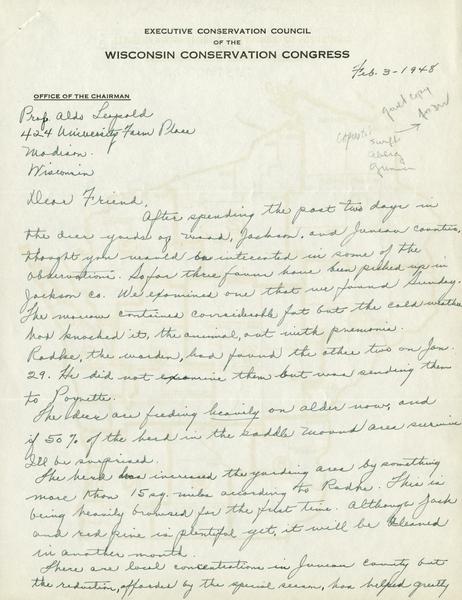 EXECUTIVE CONSERVATION COUNCIL
OF THE
WISCONSIN CONSERVATION CONGRESS
Feb. 3-1948
OFFICE OF THE CHAIRMAN
Prof. Aldo Leopold
424 University Farm Place
Madison.
Wisconsin
copies:
Swift
Dear Friend,
After spending the past two days in
the deer yards of Wood, Jackson, and Juneau counties,
thought you would be interested in some of the
observations. So far three fawns have been picked up in
Jackson co. We examined one that we found Sunday.
The marrow contined considerable fat but the cold weather
had knocked it, the animal, out with pnemonia.
Radke, the warden, had found the other two on Jan.
29. He did not examine them but was sending them
to Poynette.
The deer are feeding heavily on alder now, and
if 50% of the herd in the saddle mound area survive
I'll be surprised.
The herd has increased the yarding area by something
more than 15 sq. miles according to Radke. This is
being heavily browsed for the first time. Although Jack
and red pine is plentiful yet, it will be cleaned
in another month.
There are local concentrations in Juneau county but
the reduction, afforded by the special season, has helped greatly